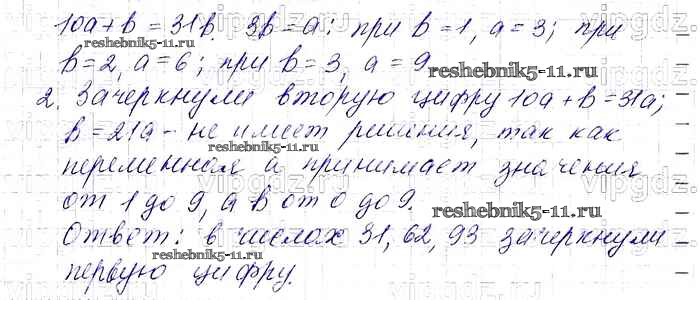 10a+b=31b. 3b=a: при b=1, a=3; при
b=2, a=6; при b=3, a=9
2. Зачеркнули вторую цифру 10a+b=31a;
b=21a - не имеет решения, так как
переменная a принимает значения
от 1 до 9, а b от 0 до 9.
Ответ: в числах 31, 62, 93 зачеркнули
первую цифру.
reshebnik5-11.ru
reshebnik5-11.ru
reshebnik5-11.ru
reshebnik5-11.ru
reshebnik5-11.ru
reshebnik5-11.ru
vipgdz.ru
vipgdz.ru
vipgdz.ru